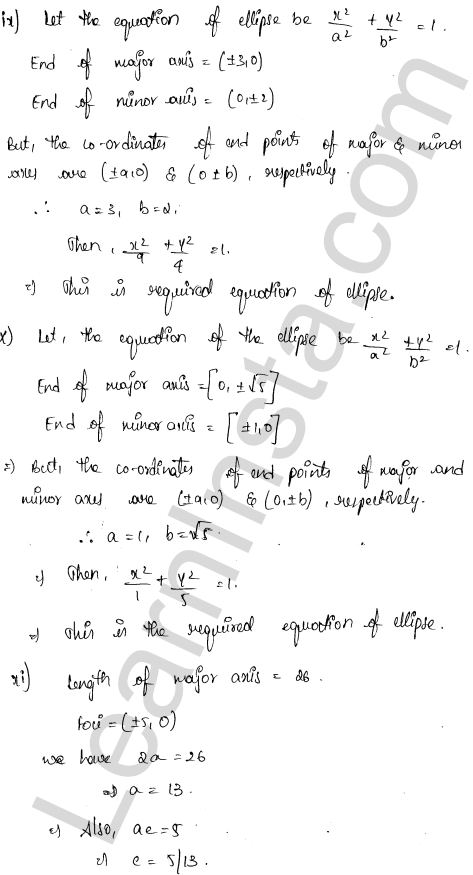 ix) Let the equation of ellipse be x²/a² + y²/b² = 1.
End of major axis = (±3,0)
End of minor axis = (0,±2)
But, the co-ordinates of end points of major & minor
axes are (±a,0) & (0 ±b), respectively.
∴ a=3, b=2.
Then, x²/9 + y²/4 = 1.
⇒ This is required equation of ellipse.
x) Let, the equation of the ellipse be x²/a² + y²/b² = 1.
End of major axis = [0, ±√5]
End of minor axis = [±1,0]
⇒ But, the co-ordinates of end points of major and
minor axes are (±a,0) & (0,±b), respectively.
∴ a = 1, b = √5.
⇒ Then, x²/1 + y²/5 = 1.
⇒ This is the required equation of ellipse.
xi) Length of major axis = 26.
Foci = (±5, 0)
we have 2a = 26
⇒ a = 13.
⇒ Also, ae = 5
⇒ e = 5/13.
LearnInsta.com